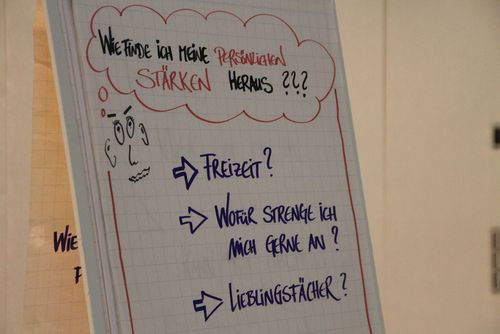 WIE FINDE ICH MEINE PERSÖNLICHEN
STÄRKEN HERAUS ???
FREIZEIT?
WOFÜR STRENGE ICH
MICH GERNE AN?
LIEBLINGSFÄCHER?
WIE
F